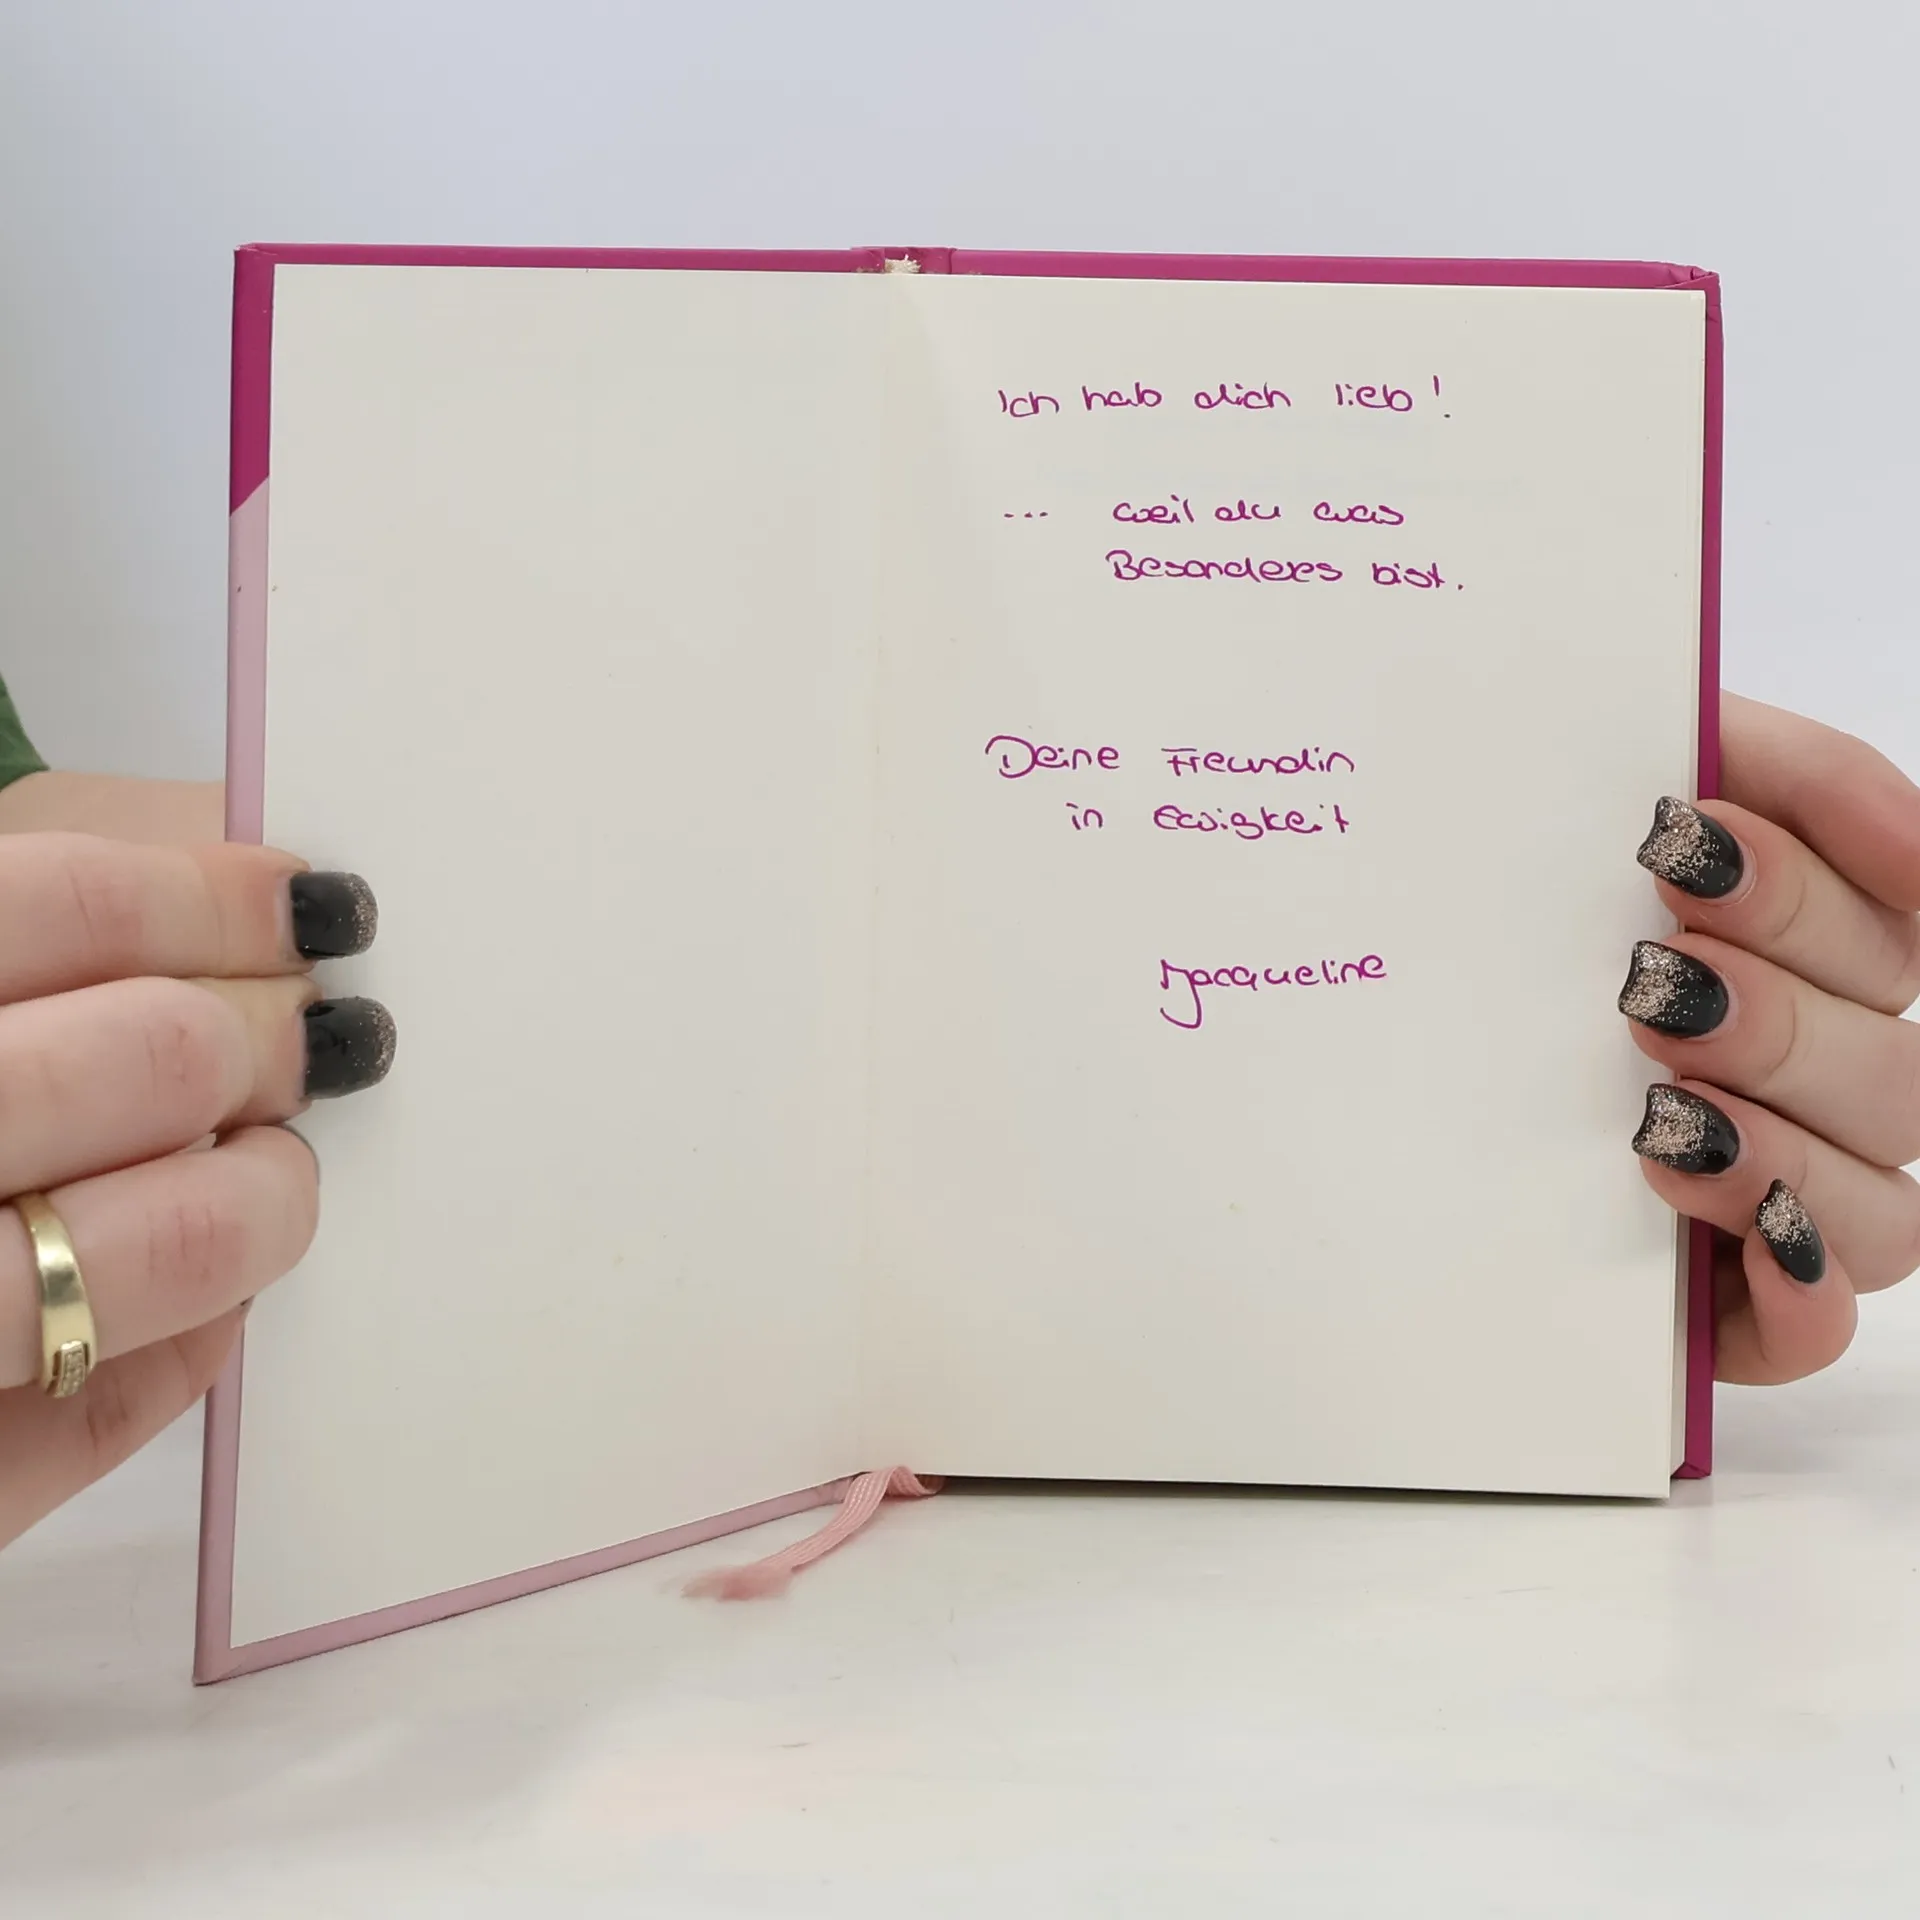 Ich hab dich lieb!
... weil du was
Besonderes bist.
Deine Freundin
in Ewigkeit
Jacqueline